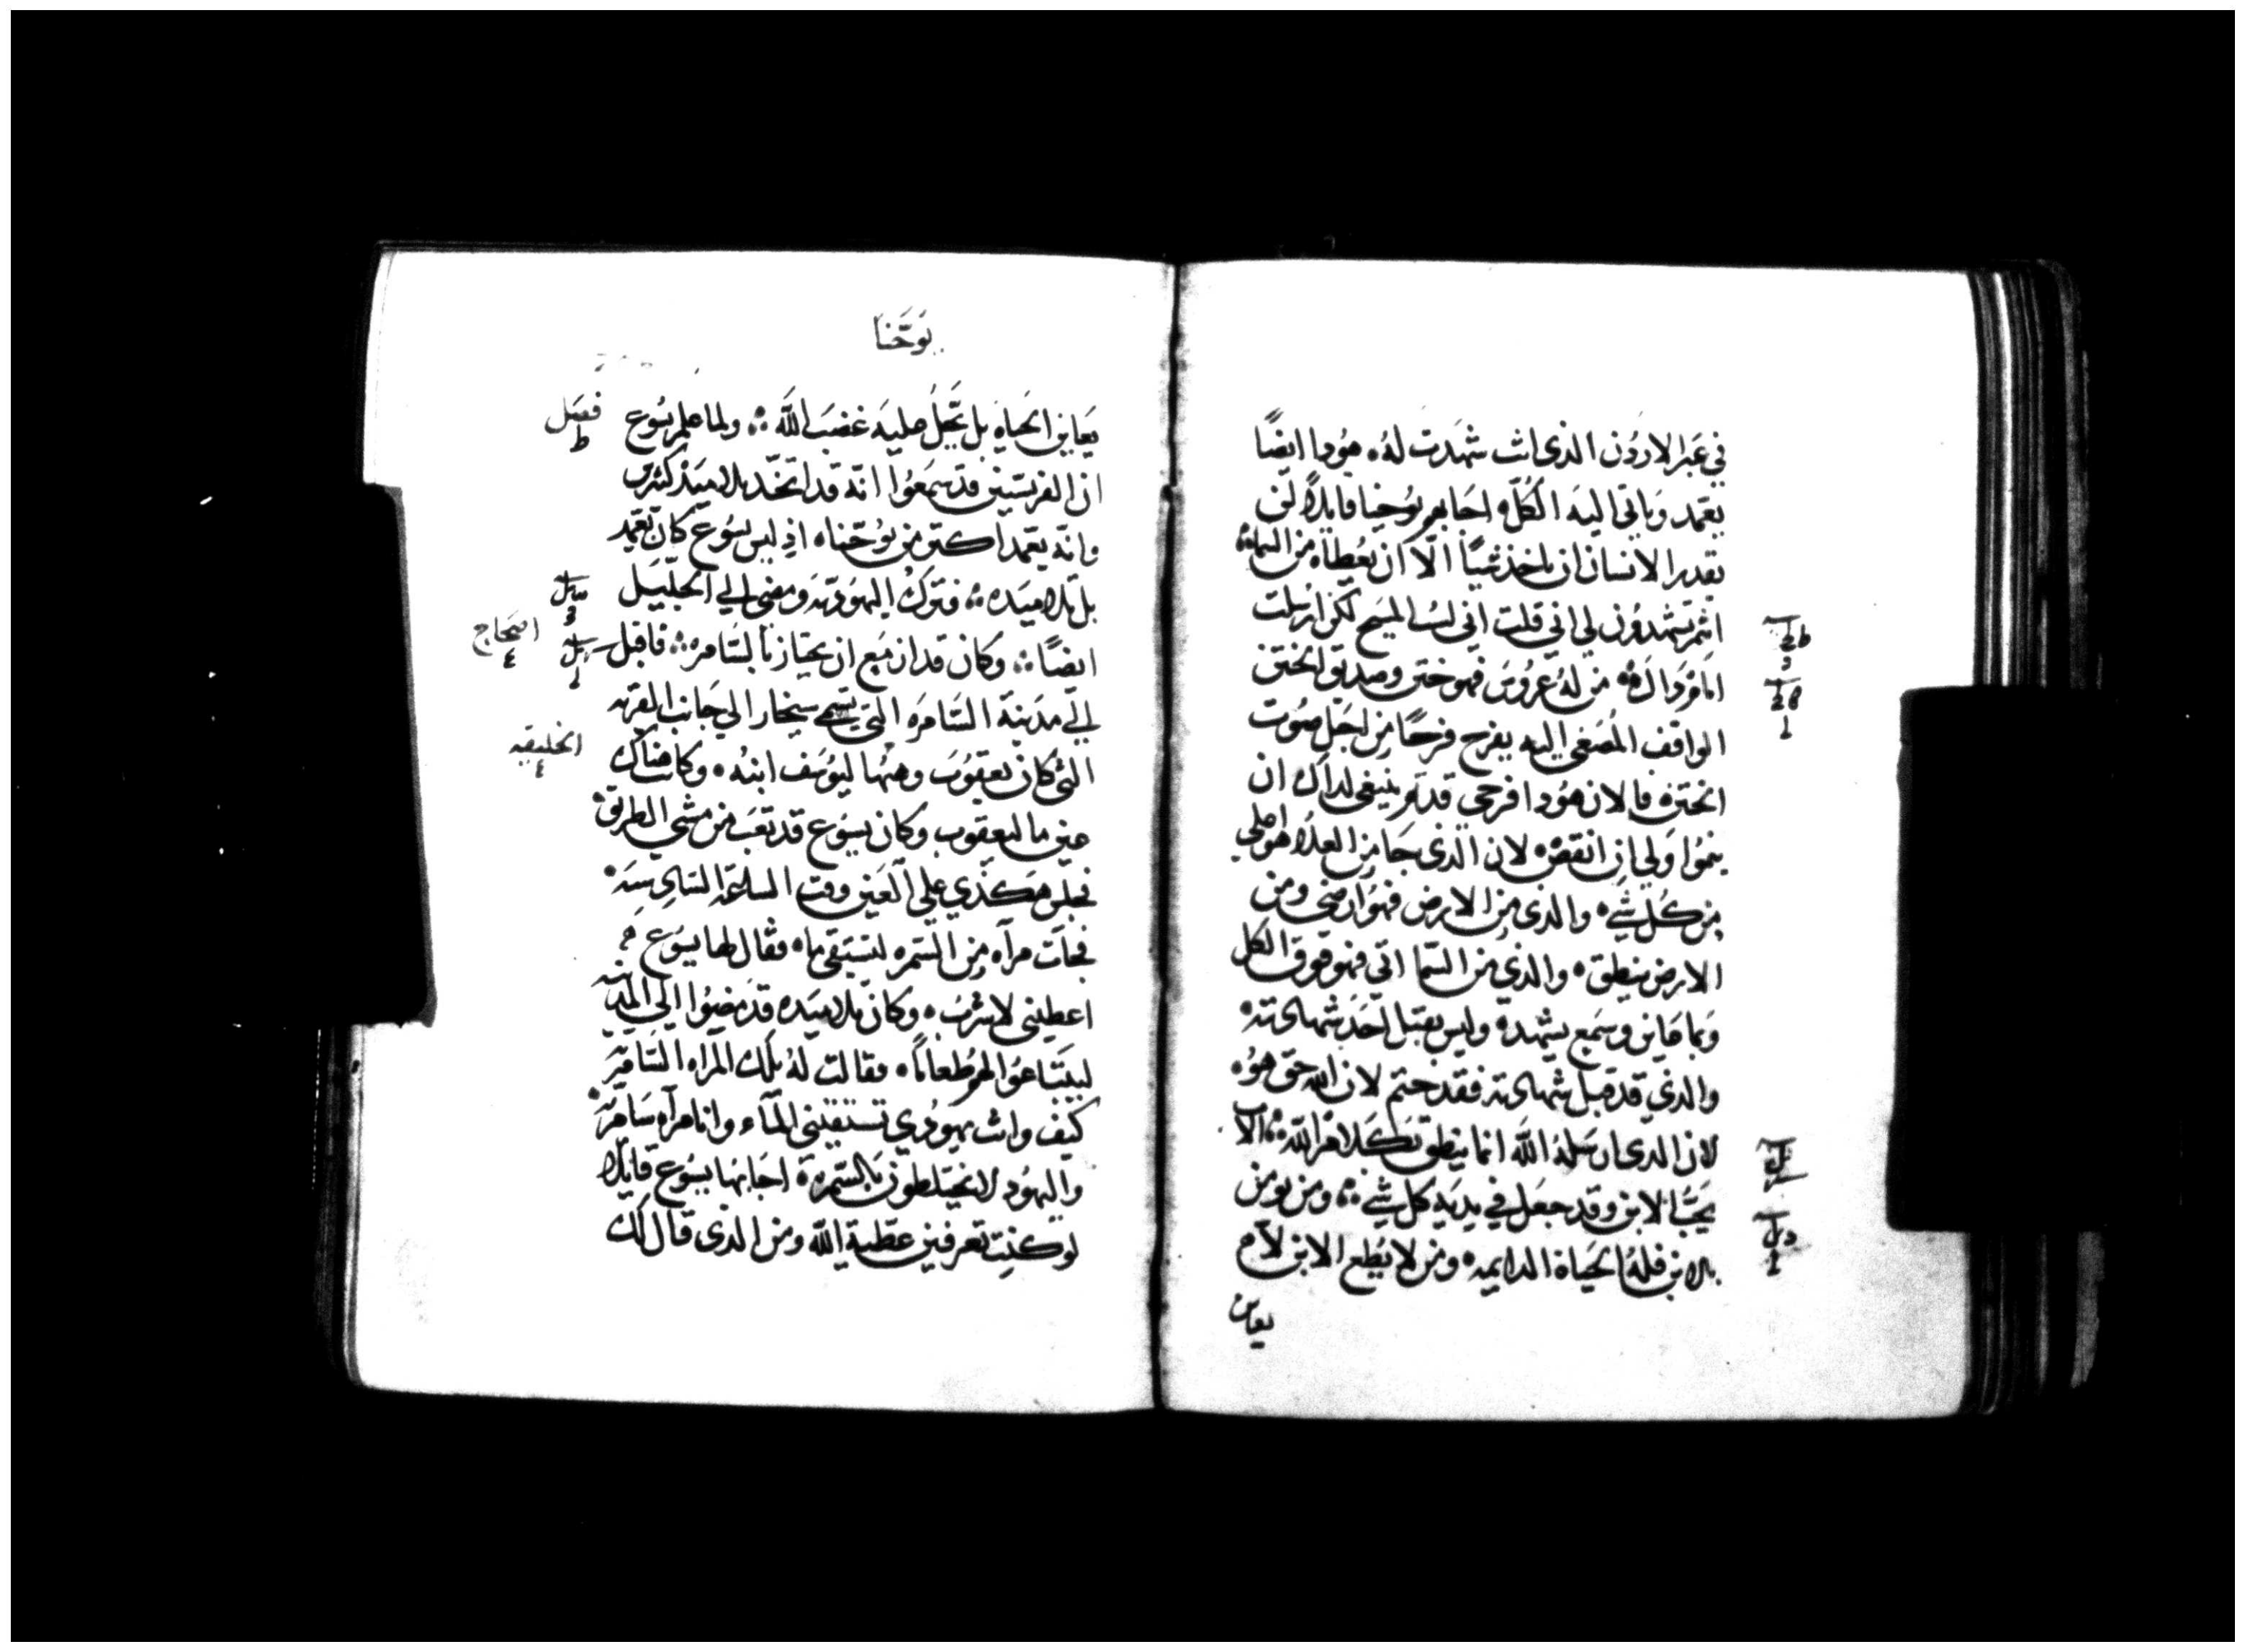 في عبر الاردن الذي انت شهدت له هودا ايضًا
يعمد وياتي اليه الكل اجابهم يوحنا قايلاً لن
يقدر الانسان ان ياخذ شيًا الّا ان يعطاه من السماء
انتم تشهدون لي اني قلت اني لست المسيح لكن ارسلت
امام ذاك من له عروس فهو ختن وصديق الختن
الواقف المصغي اليه يفرح فرحًا من اجل صوت
الختن فالان هودا فرحي قد تم ينبغي لداك ان
ينموا ولي ان انقص لان الذي جا من العلا هو اعلي
من كل شي والذي من الارض فهو ارضي ومن
الارض ينطق والذي من السما اتي فهو فوق الكل
وبما عاين وسمع يشهد وليس يقبل احد شهادته
والذي قد قبل شهادته فقد ختم لان الله حق هو
لان الدي ارسله الله انما ينطق بكلام الله الاب
يحبّ الابن وقد جعل في يديه كل شي ومن يومن
بالابن فله الحياة الدايمه ومن لا يطع الابن لا م
يعاين
يوحَّنا
يعاين الحياه بل تحلّ عليه غضب الله ولما علم يسوع
فصل
ط
ان الفريسيين قد سمعوا انه قد اتخد تلاميذ كثيرين
وانه يعمد اكتر من يوحنا اذ ليس يسوع كان يعمد
بل تلاميده فترك اليهوديه ومضي الي الجليل
ايضًا وكان قد ازمع ان يجتاز بالسامره فاقبل
اصحاح
٤
الي مدينة السامره التي تسمي سيخار الي جانب القريه
الخليقه
٤
التي كان يعقوب وهبها ليوسف ابنه وكانت هناك
عين ما ليعقوب وكان يسوع قد تعب من مشي الطريق
فجلس هكذي علي العين وقت الساعة السادسه
فجات مراه من السمره لتستقي ما فقال لها يسوع
اعطيني لاشرب وكان تلاميده قد مضوا الي المدينه
ليبتاعوا لهم طعامًا فقالت له تلك المراه السامريه
كيف وانت يهودي تستقيني المآء وانا مرآه سامريه
واليهود لا يختلطون بالسمرة اجابها يسوع قايلا
لو كنت تعرفين عطية الله ومن الذي قال لك